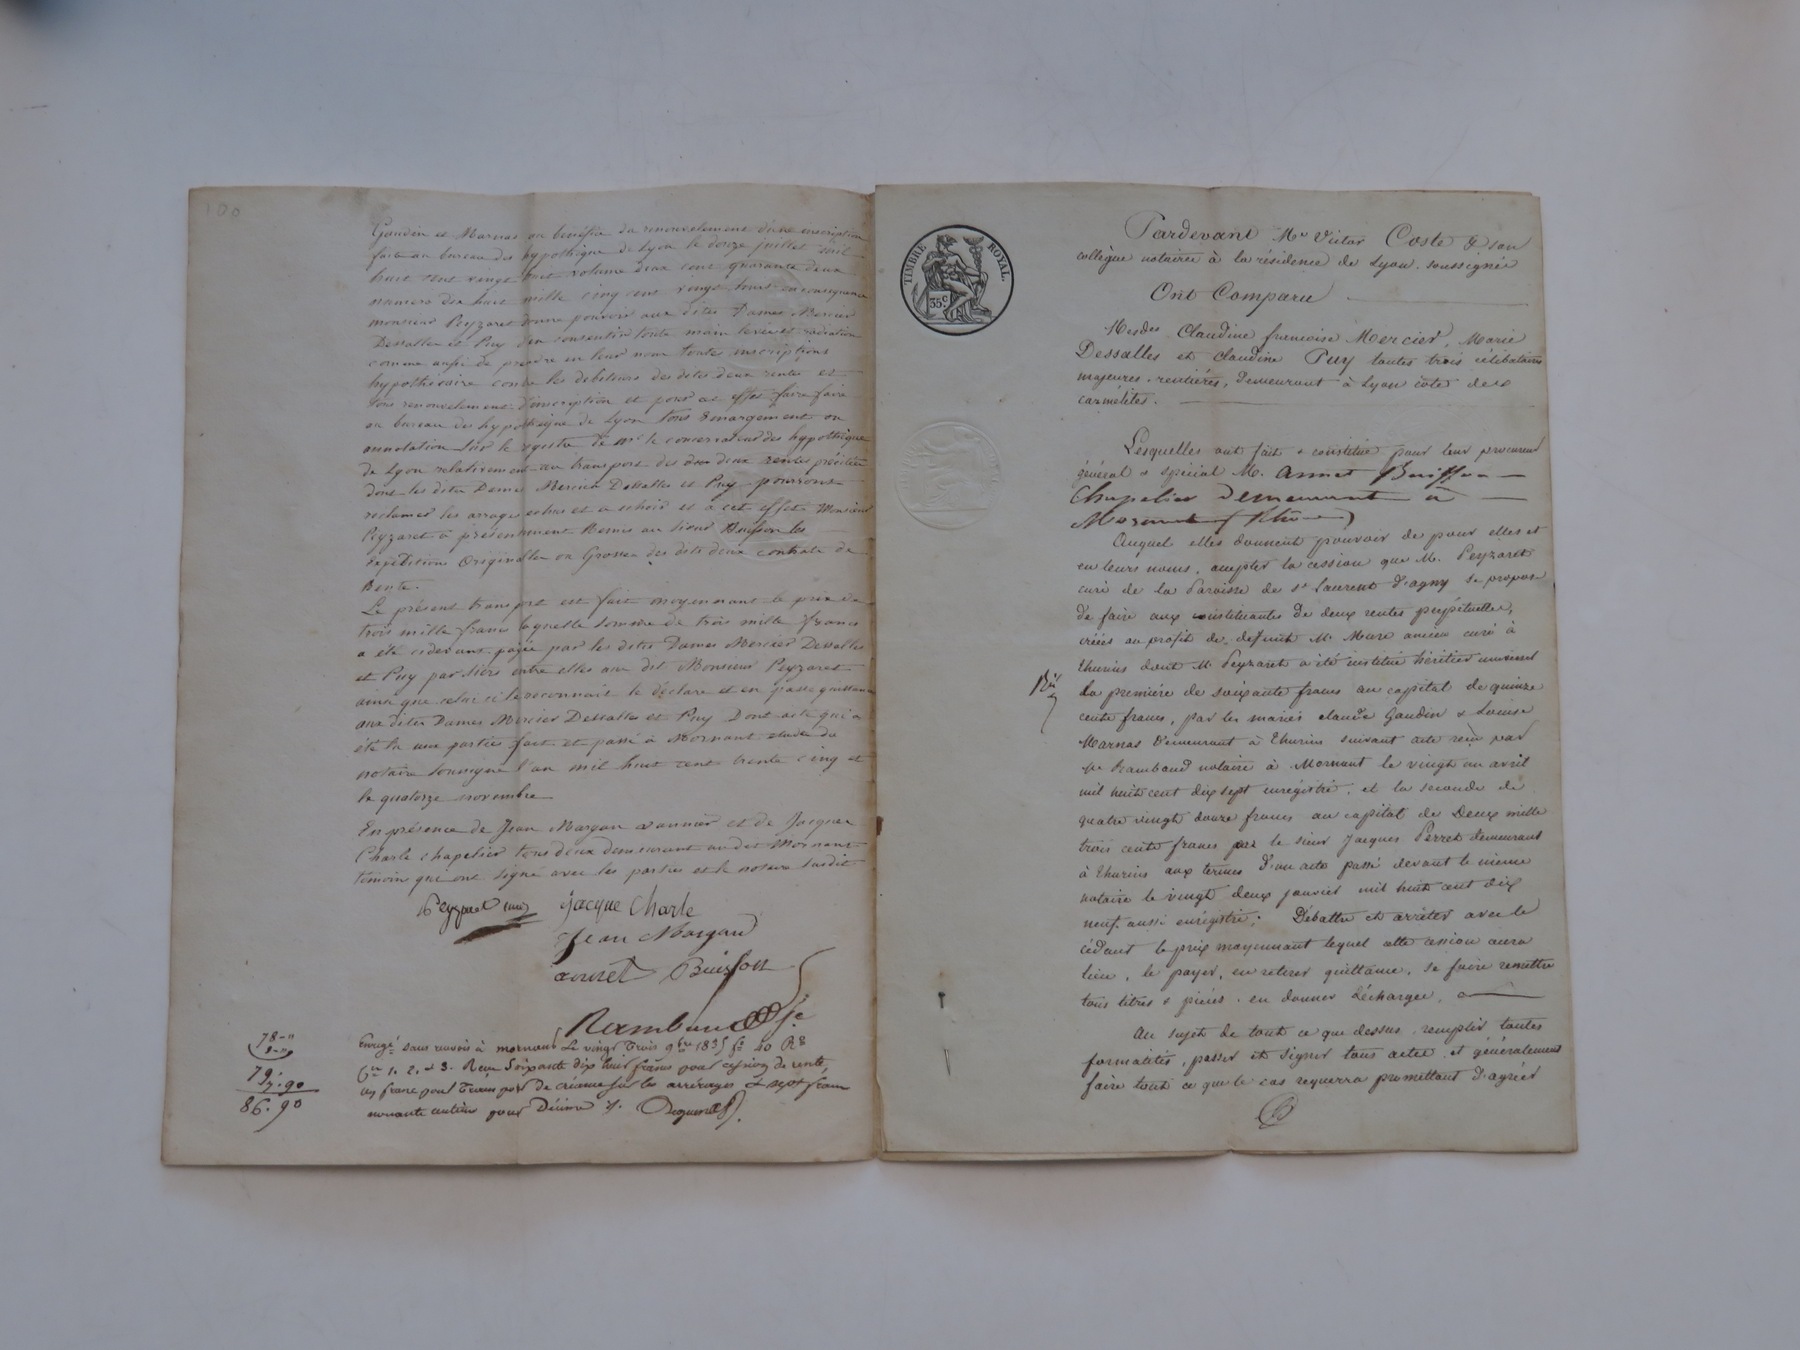 100
Gaudin et Marnas au bénéfice du renouvelement d'une inscription
faite au bureau des hypothèque de Lyon le douze juillet mil
huit cent vingt huit volume deux cent quarante deux
numero dix huit mille cinq cent vingt en consequence
monsieur Peyzaret donne pouvoir aux dites Dames Mercier
Dessalles et Puy d'en consentir toute main levée et radiation
comme aussi de prendre en leur nom toutes inscriptions
hypothécaire contre les debiteurs des dites deux rentes et
tous renouvelement d'inscription et pour cet effet faire faire
au bureau des hypothèque de Lyon tous émargement ou
annotation sur le registre de Mr le conservateur des hypothèque
de Lyon relativement au transport des deux rentes précitées
dont les dites Dames Mercier Dessalles et Puy pourront
reclamer les arrages echus et a echoir et a cet effet Monsieur
Peyzaret à présentement Remis au sieur Buisson les
expéditions Originalles ou Grosses des dits deux contrats de
Rente.
Le présent transport est fait moyennant le prix de
trois mille francs laquelle somme de trois mille francs
a été cidevant payée par les dites Dames Mercier Dessalles
et Puy par tiers entre elles au dit Monsieur Peyzaret
ainsi que celui ci le reconnait le déclare et en passe quittance
aux dites Dames Mercier Dessalles et Puy Dont acte qui a
été lu aux parties fait et passé à Mornant etude du
notaire soussigné l'an mil huit cent trente cinq et
le quatorze novembre
En présence de Jean Margan et de Jacques
Charle chapelier tous deux demeurant au dit Mornant
témoins qui ont signé avec les parties et le notaire susdit
Peyzaret curé Jacque Charle
Jean Margand
annet Buisson
Rambaud
78-"
1-"
79-"
7.90
86.90
Enregé sans renvois à mornant Le vingt trois 9bre 1835 fo 40 Ro
Cses 1. 2. et 3. Reçu Soixante dix huit francs pour cession de rente,
un franc pour de créance sur les arrérages & sept francs
nonante centimes pour Décime
TIMBRE ROYAL.
35c
Pardevant Me Victor Coste & son
collègue notaires à la résidence de Lyon, soussignés
Ont Comparu
Mesdes Claudine francoise Mercier, Marie
Dessalles et Claudine Puy toutes trois célibataires
majeures, rentières, demeurant à Lyon côte des
carmélites.
Lesquelles ont fait & constitué pour leur procureur
général & spécial M. annet Buisson
Chapelier demeurant à
Mornant (Rhône)
Auquel elles donnent pouvoir de pour elles et
en leurs noms, accepter la cession que M. Peyzaret
curé de la Paroisse de St Laurent d'agny se propose
de faire aux constituantes de deux rentes perpétuelles,
créés au profit de defunt M. Mure ancien curé à
thurins dont M. Peyzaret a été institué héritier universel
La première de soixante francs au capital de quinze
cents francs, par les mariés claude Gaudin & Louise
Marnas demeurant à thurins suivant acte reçu par
Me Rambaud notaire à Mornant le vingt un avril
mil huit cent dix sept enrégistré, et la seconde de
quatre vingt douze francs au capital de Deux mille
trois cents francs par le sieur Jacques Perret demeurant
à thurins aux termes d'un acte passé devant le même
notaire le vingt deux janvier mil huit cent dix
neuf aussi enrégistré; Débattre et arrêter avec le
cédant le prix moyennant lequel cette cession aura
lieu, le payer, en retirer quittance, se faire remettre
tous titres & pièces, en donner décharges,
Au sujet de tout ce que dessus, remplir toutes
formalités, passer et signer tous actes et généralement
faire tout ce que le cas requerra promettant d'agréer